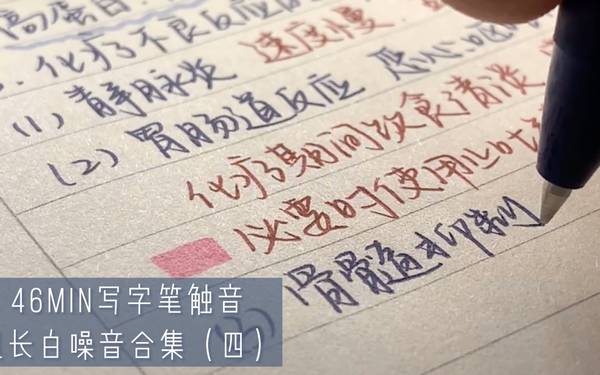 高蛋白
化疗不良反应
(1) 静脉炎 速度慢
(2) 胃肠道反应 恶心
化疗期间饮食清淡
必要时使用止吐
骨髓抑制
46MIN写字笔触音
长白噪音合集（四）